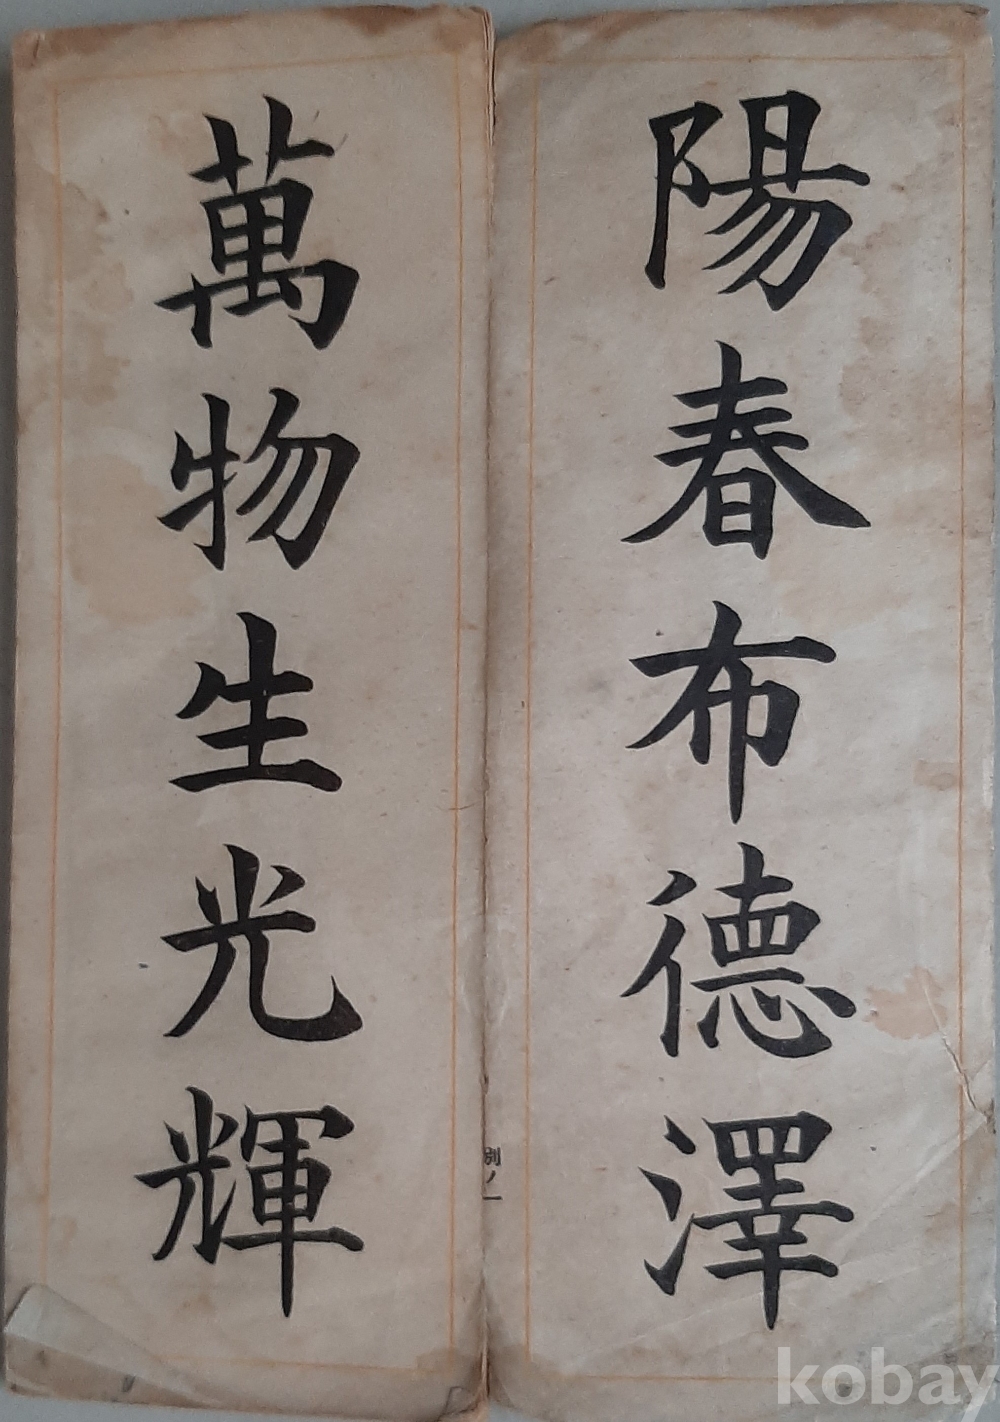 陽春布德澤
萬物生光輝
別ノ一
kobay